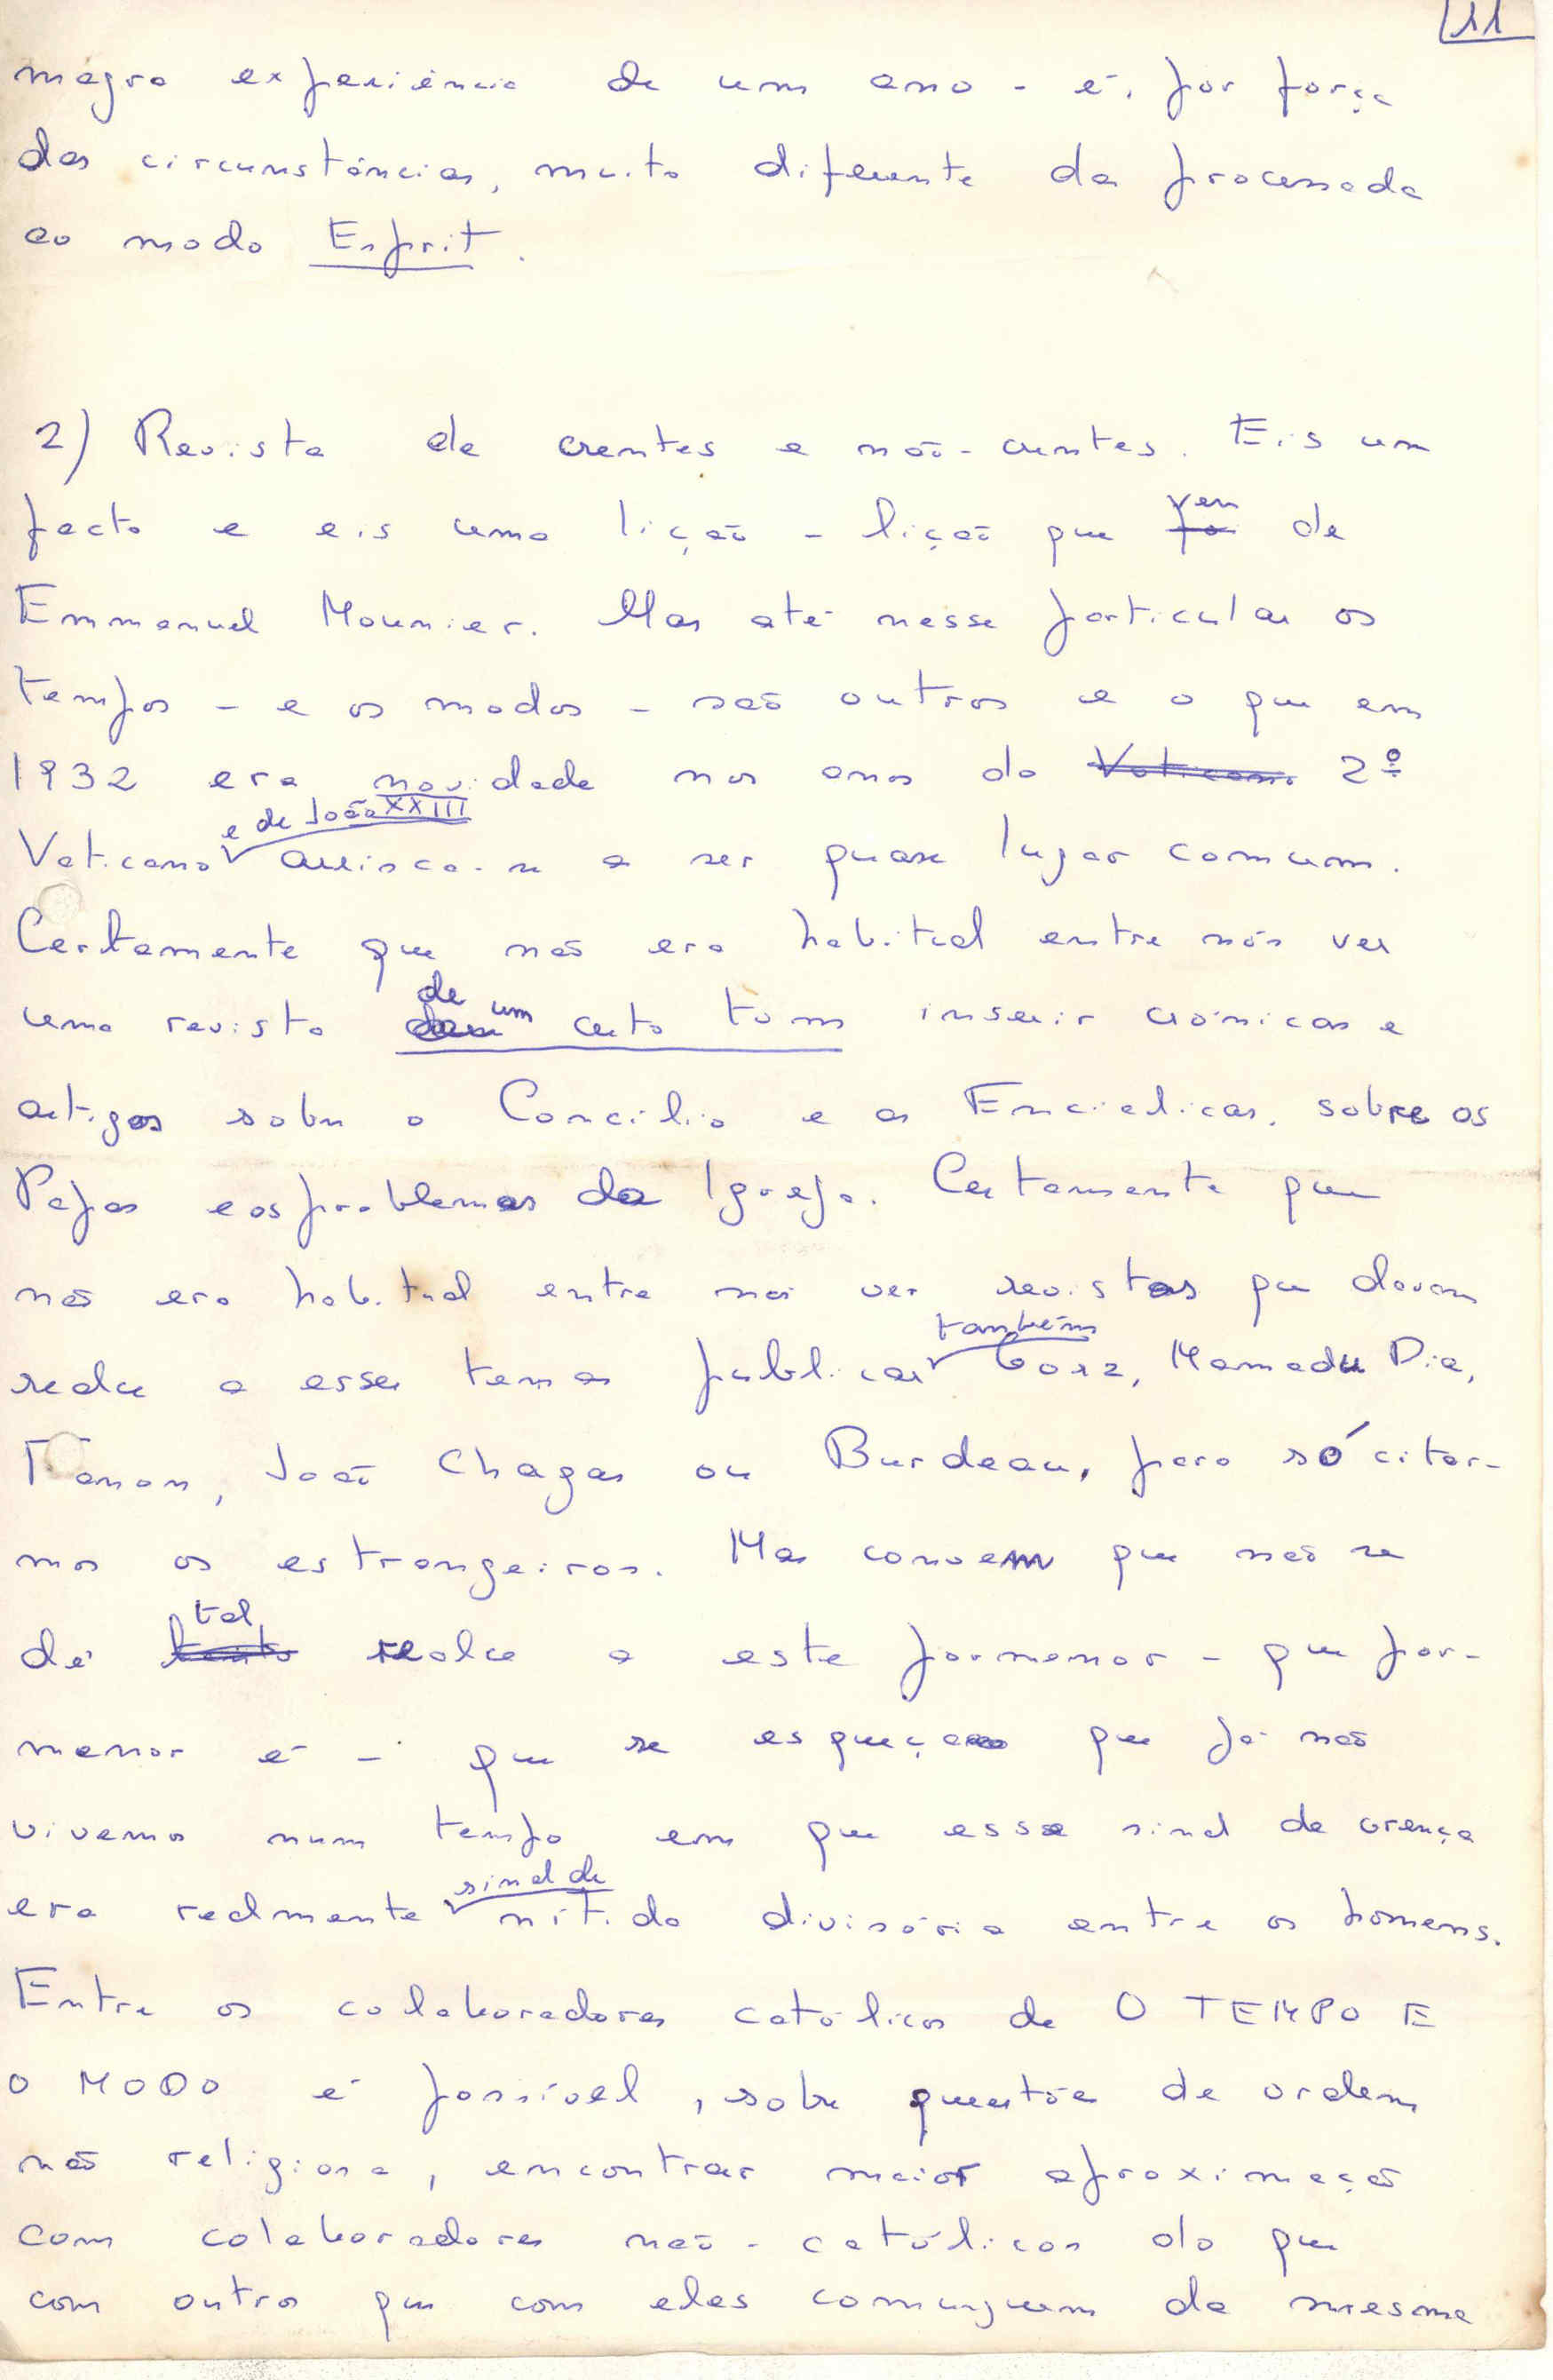 11
magra experiência de um ano - é, por força
das circunstâncias, muito diferente da processada
ao modo Esprit.
2) Revista de crentes e não-crentes. Eis um
facto e eis uma lição - lição que vem de
Emmanuel Mounier. Mas até nesse particular os
tempos - e os modos - são outros e o que em
1932 era novidade nos anos do Vaticano 2º
e de João XXIII
Vaticano arrisca-se a ser quase lugar comum.
Certamente que não era habitual entre nós ver
uma revista de um certo tom inserir crónicas e
artigos sobre o Concílio e as Encíclicas, sobre os
Papas e os problemas da Igreja. Certamente que
não era habitual entre nós ver revistas que davam
também
realce a esses temas publicar Gorz, Mamadu Dia,
Fanon, João Chagas ou Burdeau, para só citar-
mos os estrangeiros. Mas convem que não se
tal
dê tanto realce a este pormenor - que por-
menor é - que se esqueça que já não
vivemos num tempo em que esse sinal de crença
sinal de
era realmente nítida divisória entre os homens.
Entre os colaboradores católicos de O TEMPO E
O MODO é possível, sobre questões de ordem
não religiosa, encontrar maior aproximação
com colaboradores não-católicos do que
com outros que com eles comunguem da mesma